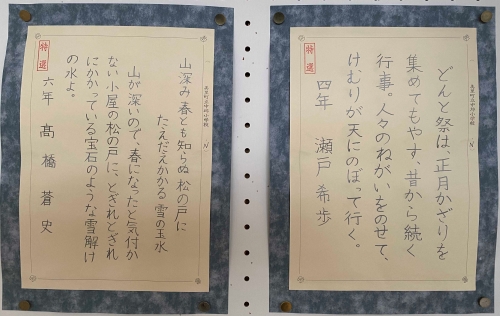 どんと祭は、正月かざりを
集めてもやす、昔から続く
行事。人々のねがいをのせて、
けむりが天にのぼって行く。
特選
四年 瀬戸希歩
山深み春とも知らぬ松の戸に
たえだえかかる雪の玉水
山が深いので、春になったと気付か
ない小屋の松の戸に、とぎれとぎれ
にかかっている宝石のような雪解け
の水よ。
特選
六年 髙橋蒼史